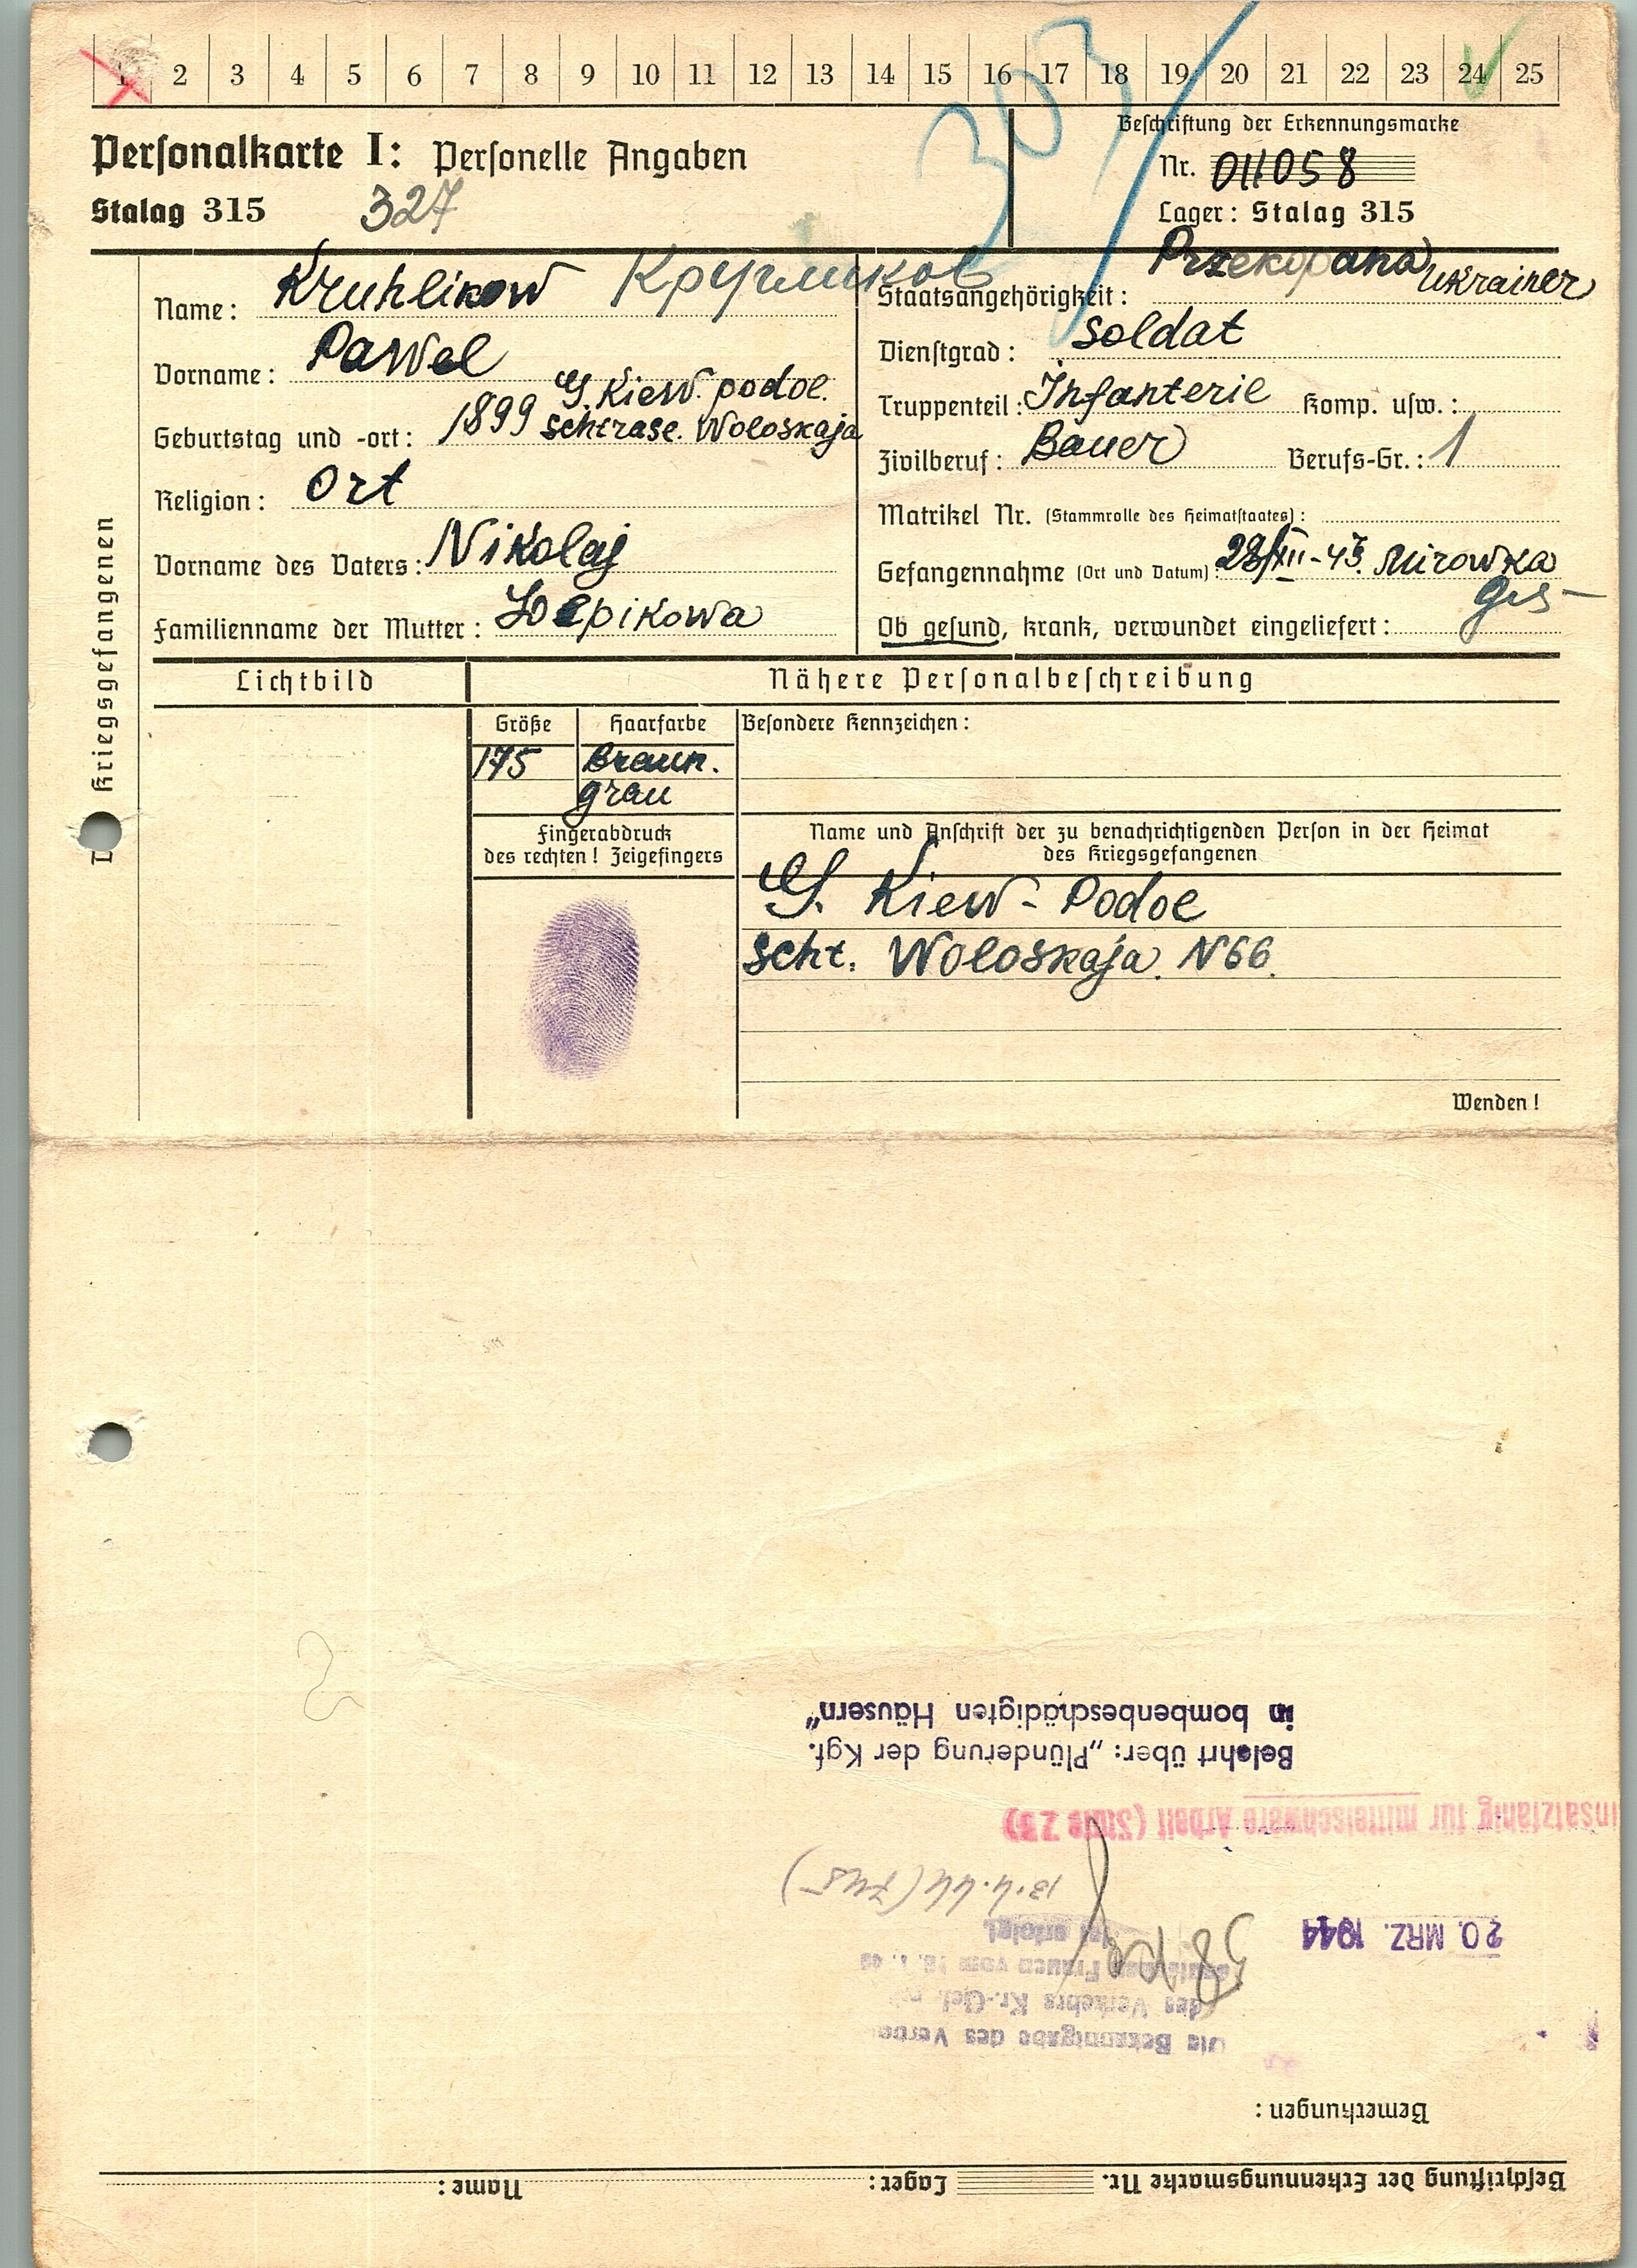 1 2 3 4 5 6 7 8 9 10 11 12 13 14 15 16 17 18 19 20 21 22 23 24 25
303
Personalkarte I: Personelle Angaben
Stalag 315 327
Beschriftung der Erkennungsmarke
Nr. 011058
Lager: Stalag 315
Przekopana
Kriegsgefangenen
Name: Kruhlikow Кругликов
Vorname: Pawel
Geburtstag und -ort: 1899 G. Kiew. podol.
schtrase. Woloskaja
Religion: Ort
Vorname des Vaters: Nikolaj
Familienname der Mutter:
Staatsangehörigkeit: Ukrainer
Dienstgrad: Soldat
Truppenteil: Infanterie Komp. usw.:
Zivilberuf: Bauer Berufs-Gr.: 1
Matrikel Nr. (Stammrolle des Heimatstaates):
Gefangennahme (Ort und Datum): 28/XII-43. Mirowka
Ob gesund, krank, verwundet eingeliefert: ges
Lichtbild
Nähere Personalbeschreibung
Größe Haarfarbe Besondere Kennzeichen:
175 Braun.
grau
Fingerabdruck
des rechten! Zeigefingers
Name und Anschrift der zu benachrichtigenden Person in der Heimat
des Kriegsgefangenen
G. Kiew - Podol
scht. Woloskaja. N66.
Wenden!
Beschriftung der Erkennungsmarke Nr. Lager: Name:
Bemerkungen:
Die Bekanntgabe des Verbo
des Verkehrs Kr.-Gef. mit
Frauen vom
ist erfolgt
20. MRZ. 1944
13.4.44 (745)
insatzfähig für mittelschwere Arbeit (Stufe 23)
Belehrt über: „Plünderung der Kgf.
in bombenbeschädigten Häusern"